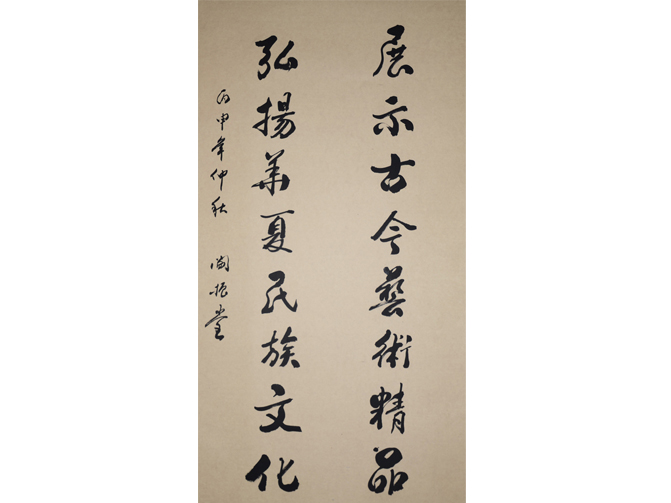 展示古今藝術精品
弘揚華夏民族文化
丙申年仲秋 閻振堂